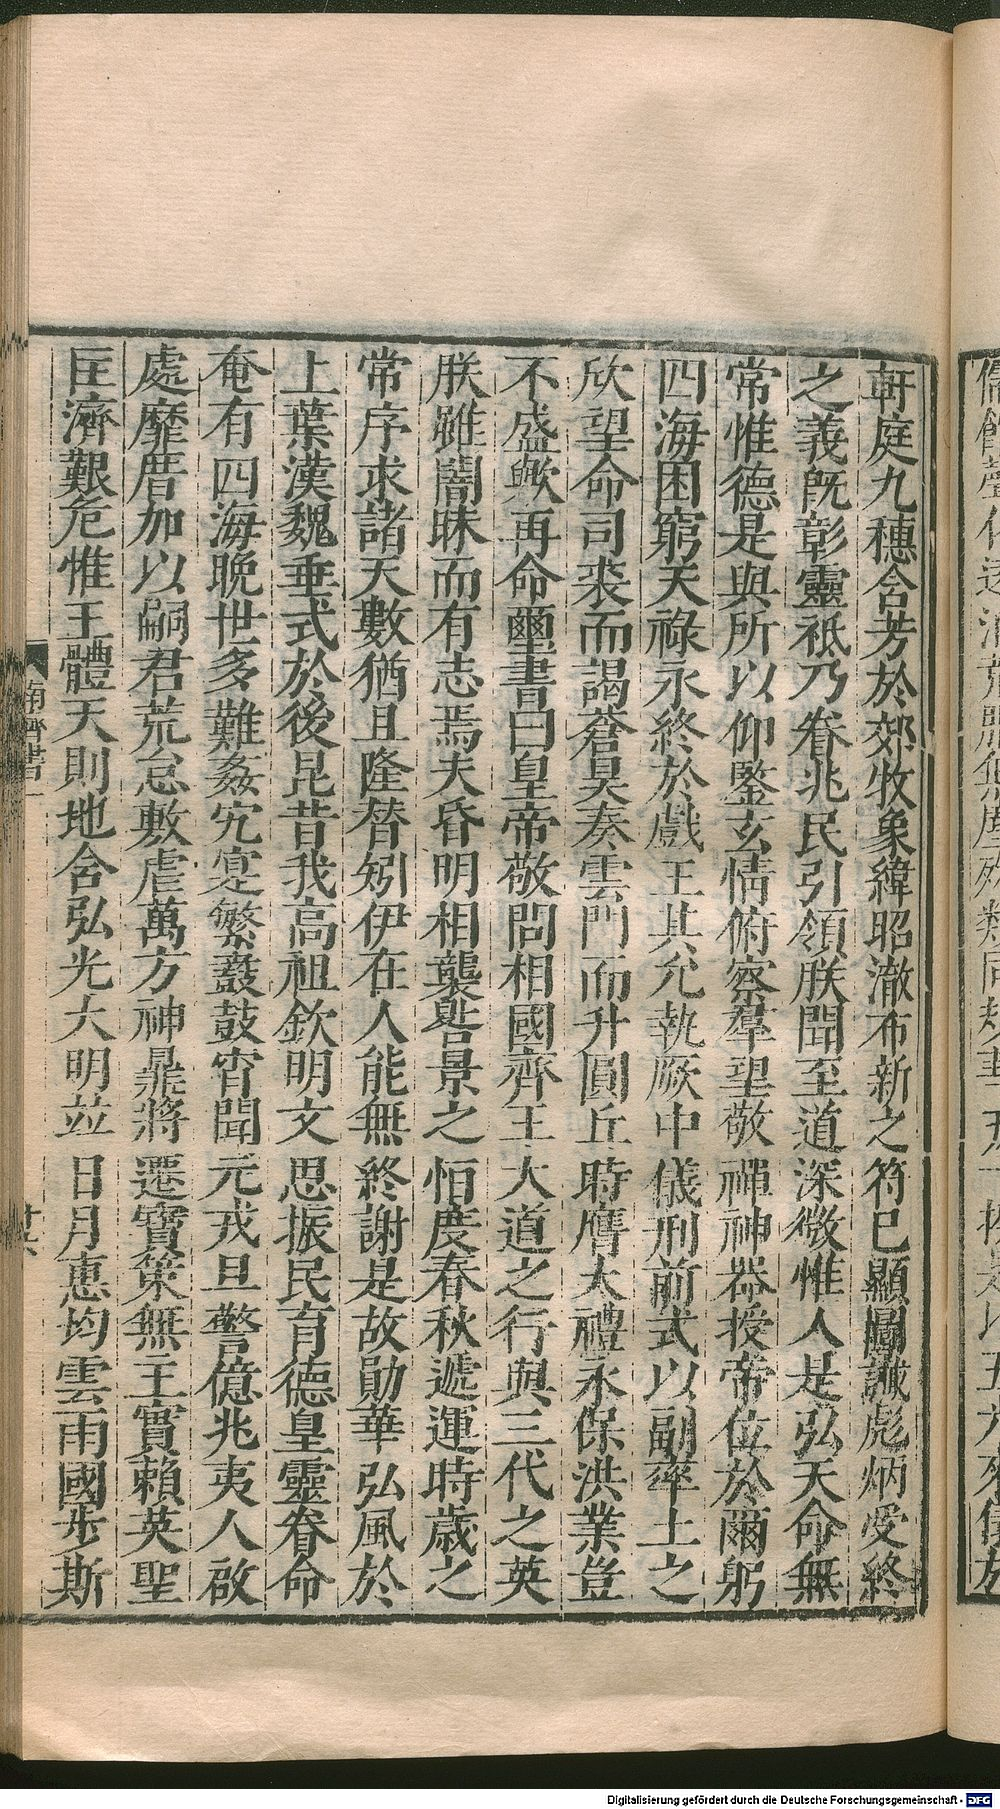 軒庭九穗含芳於郊牧象緯昭澈布新之符已顯圖讖彪炳受終
之義旣彰靈祗乃眷兆民引領朕聞至道深微惟人是弘天命無
常惟德是與所以仰鑒玄情俯察羣望敬禪神器授帝位於爾躬
四海困窮天祿永終於戲王其允執厥中儀刑前式以副率土之
欣望命司裘而謁蒼昊奏雲門而升圓丘時膺大禮永保洪業豈
不盛歟再命璽書曰皇帝敬問相國齊王大道之行與三代之英
朕雖闇昧而有志焉夫昏明相襲晷景之恒度春秋遞運時歲之
常序求諸天數猶且隆替矧伊在人能無終謝是故勛華弘風於
上葉漢魏垂式於後昆昔我高祖欽明文思振民育德皇靈眷命
奄有四海晚世多難姦宄寔繁鼖鼓宵聞元戎旦警億兆夷人啟
處靡厝加以嗣君荒怠敷虐萬方神鼎將遷寶策無王實賴英聖
匡濟艱危惟王體天則地含弘光大明並日月惠均雲雨國步斯
南齊書一
廿六
Digitalisierung gefördert durch die Deutsche Forschungsgemeinschaft - DFG